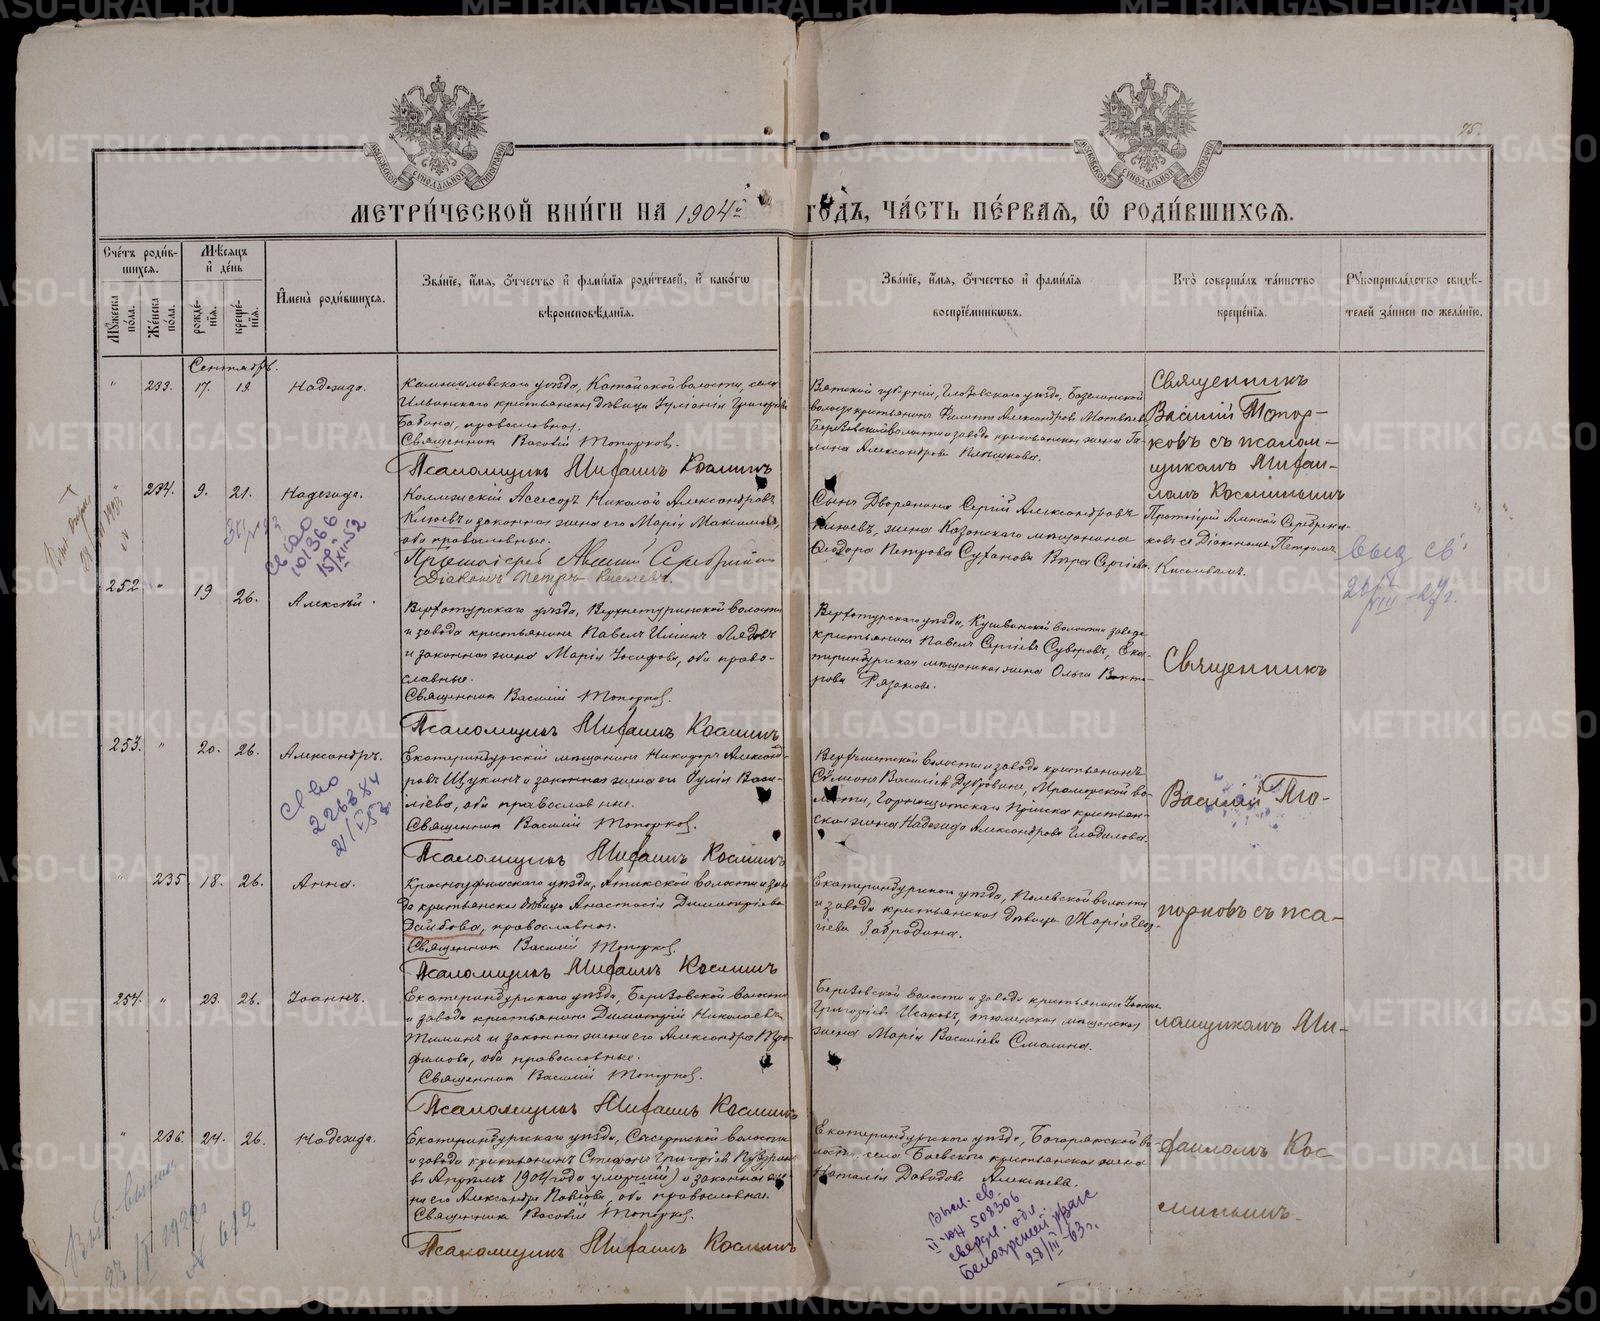 75.
МЕТРИ́ЧЕСКОЙ КНИ́ГИ НА 1904й ГО́ДЪ, ЧА́СТЬ ПЕ́РВАЯ, Ѡ РОДИ́ВШИХСЯ.
Сче́тъ роди́вшихся.
Мѹ́жеска по́ла.
Же́нска по́ла.
Мѣ́сяцъ и де́нь
рожде́нія.
креще́нія.
Имена̀ роди́вшихся.
Зва́ніе, и́мя, о́тчество и фами́лія роди́телей, и како́гѡ
вѣроисповѣ́данія.
Зва́ніе, и́мя, о́тчество и фами́лія
воспріе́мникѡвъ.
Кто̀ соверша́лъ та́инство
креще́нія.
Рѹкоприкла́дство свидѣ́-
телей за́писи по жела́нію.
Сентябрь.
233. 17. 18 Надежда.
Камышловскаго уѣзда, Катайской волости, села
Ильинскаго крестьянская дѣвица Іуліанія Григорьева
Бабина, православная.
Священникъ Василій Топорковъ.
Псаломщикъ Михаилъ Косминъ
Вятской губерніи, Глазовскаго уѣзда,
волости крестьянинъ Филиппъ Александровъ
Березовской волости и завода крестьянская жена Га-
лина Александрова
Священникъ
Василій Топор-
ковъ съ псалом-
щикомъ Михаи-
ломъ Косминымъ
234. 9. 21. Надежда.
Коллежскій Ассесоръ Николай Александровъ
Клюевъ и законная жена его Марія Максимова,
оба православные.
Протоіерей Алексій Серебренниковъ
Діаконъ Петръ Киселевъ.
Сынъ Дворянина Сергій Александровъ
Клюевъ, жена Казанскаго мѣщанина
Ѳеодора Петрова Суханова Вѣра Сергіева.
Протоіерей Алексій Серебрен-
ковъ съ Діакономъ Петромъ
Киселевымъ.
выд св.
26/VIII-27г.
252. " 19 26. Алексѣй.
Верхотурскаго уѣзда, Верхнетуринской волости
и завода крестьянинъ Павелъ Лядовъ
и законная жена Марія Іосифова, оба право-
славные.
Священникъ Василій Топорковъ.
Псаломщикъ Михаилъ Косминъ
Верхотурскаго уѣзда, Кушвинской волости и завода
крестьянинъ Павелъ Сергіевъ Суворовъ, Ека-
теринбургская мѣщанская жена Ольга Викто-
рова Рязанова.
Священникъ
253. " 20. 26. Александръ.
Св во
226384
Екатеринбургскій мѣщанинъ Никифоръ Александ-
ровъ Щукинъ и законная жена его Юлія Васи-
ліева, оба православные.
Священникъ Василій Топорковъ.
Псаломщикъ Михаилъ Косминъ
Верхисетской волости и завода крестьянинъ
Симеонъ Василіевъ Дубровинъ, Мраморской во-
лости, Горнощитскаго пріиска крестьян-
ская жена Надежда Александрова Гладилова.
Василій То-
" 235. 18. 26. Анна.
Красноуфимскаго уѣзда, Атигской волости и заво-
да крестьянская дѣвица Анастасія Димитріева
православная.
Священникъ Василій Топорковъ.
Псаломщикъ Михаилъ Косминъ
Екатеринбургскаго уѣзда, Полевской волости
и завода крестьянская дѣвица Марія Геор-
гіева Забродина.
порковъ съ пса-
254. " 23. 26. Іоаннъ.
Екатеринбургскаго уѣзда, Березовской волости
и завода крестьянинъ Димитрій Николаевъ
и законная жена его Александра Тро-
фимова, оба православные.
Священникъ Василій Топорковъ.
Псаломщикъ Михаилъ Косминъ
Березовской волости и завода крестьянинъ Іоаннъ
Григорьевъ Исаковъ, тюменская мѣщанская
жена Марія Василіева Смолина.
ломщикомъ Ми-
" 236. 24. 26. Надежда.
Екатеринбургскаго уѣзда, Сысертской волости
и завода крестьянинъ Стефанъ Григорьевъ
въ Апрѣлѣ 1904 года умершій) и законная же-
на его Александра Павлова, оба православные.
Священникъ Василій Топорковъ.
Псаломщикъ Михаилъ Косминъ
Екатеринбургскаго уѣзда, Багарякской во-
лости, села Боевскаго крестьянская жена
Наталія Давидова Алексѣева.
хаиломъ Кос-
минымъ.
Выд. св
508306
свердл. обл.
28/III-63г.
№ 612
METRIKI.GASO-URAL.RU